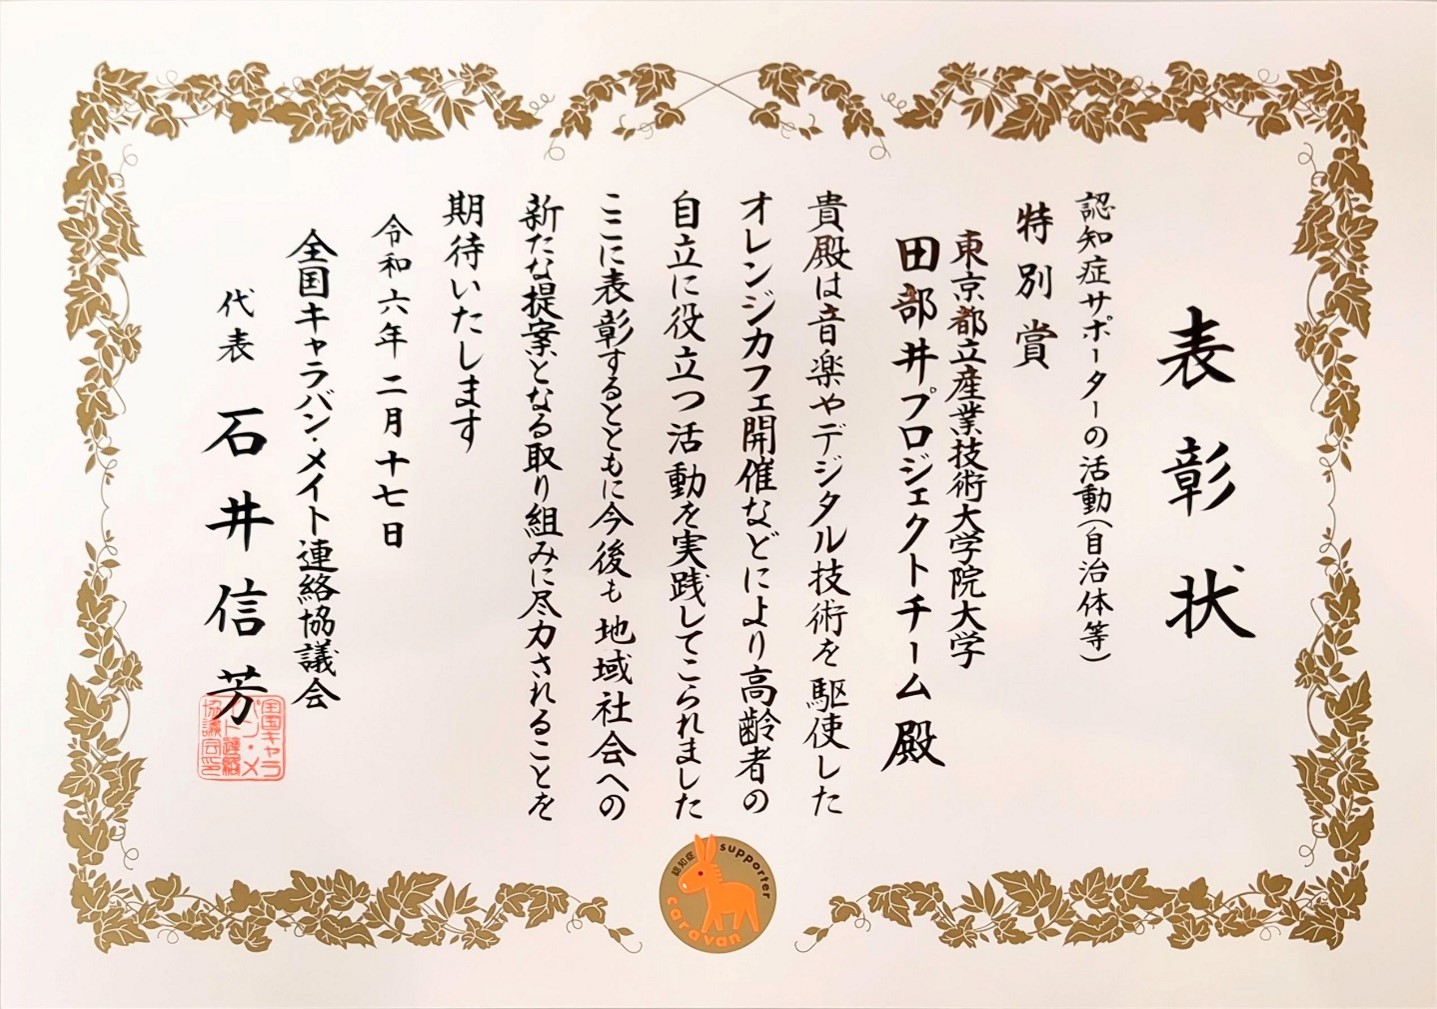 表彰状
認知症サポーターの活動(自治体等)
特別賞
東京都立産業技術大学院大学
田部井プロジェクトチーム 殿
貴殿は音楽やデジタル技術を駆使した
オレンジカフェ開催などにより高齢者の
自立に役立つ活動を実践してこられました
ここに表彰するとともに今後も地域社会への
新たな提案となる取り組みに尽力されることを
期待いたします
令和六年二月十七日
全国キャラバン・メイト連絡協議会
代表 石井信芳
全国キャラ
バン・メ
イト連絡
協議会印
認知症 supporter
caravan